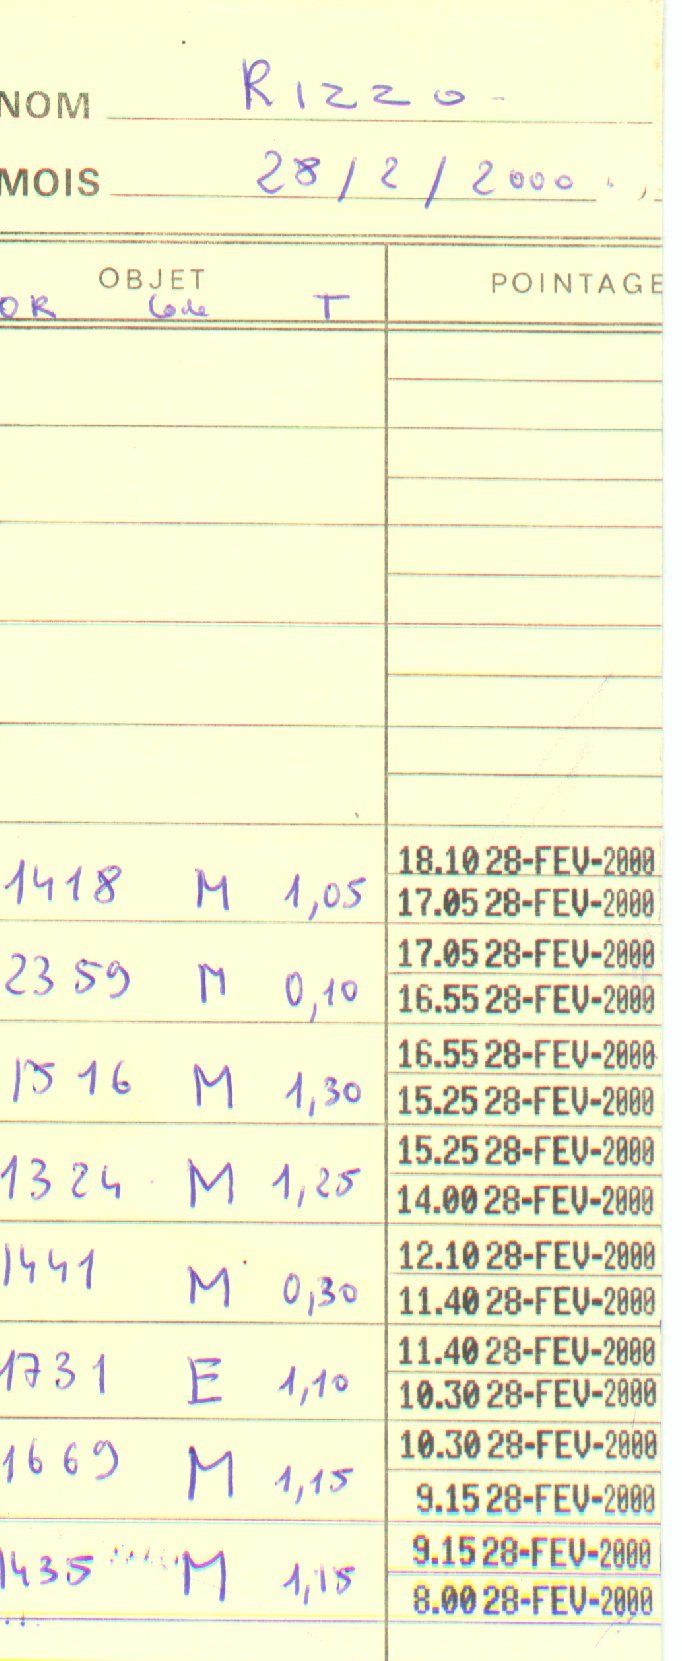 NOM Rizzo -
MOIS 28/2/2000
OBJET POINTAGE
OR Code T
18.10 28-FEV-2000
1418 M 1,05
17.05 28-FEV-2000
17.05 28-FEV-2000
2359 M 0,10
16.55 28-FEV-2000
16.55 28-FEV-2000
1516 M 1,30
15.25 28-FEV-2000
15.25 28-FEV-2000
1324 M 1,25
14.00 28-FEV-2000
12.10 28-FEV-2000
1441 M 0,30
11.40 28-FEV-2000
11.40 28-FEV-2000
1731 E 1,10
10.30 28-FEV-2000
10.30 28-FEV-2000
1669 M 1,15
9.15 28-FEV-2000
9.15 28-FEV-2000
1435 M 1,15
8.00 28-FEV-2000